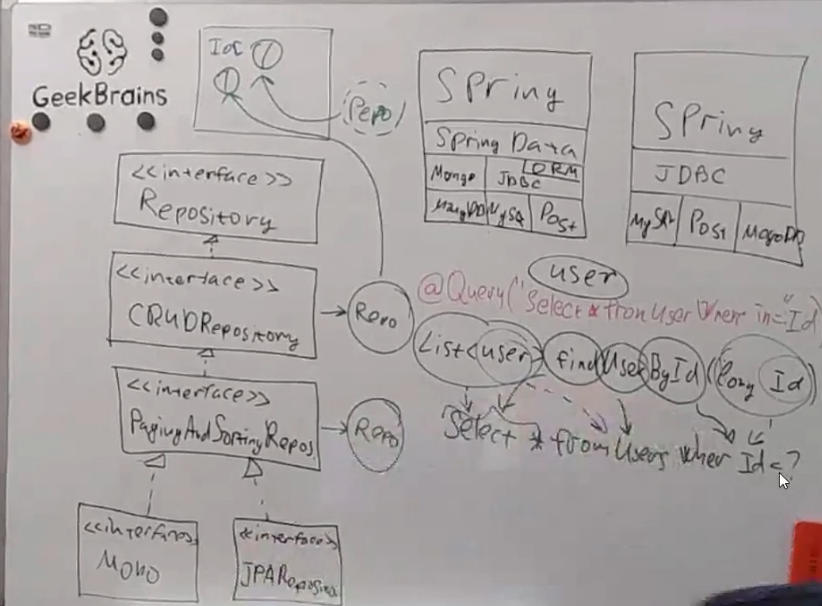 GeekBrains
IoC
Repo
<<interface>>
Repository
<<interface>>
CRUDRepository
Repo
<<interface>>
PagingAndSortingRepos.
Repo
<<interface>>
Mono
<<interface>>
JPARepository
Spring
Spring Data
Mongo JDBC ORM
MongoDB MySQL Post
Spring
JDBC
MySQL Post MongoDB
user
@Query("Select * from User Wherr in="Id)
List<user> findUserById(Long Id)
Select * from Users wher Id=?